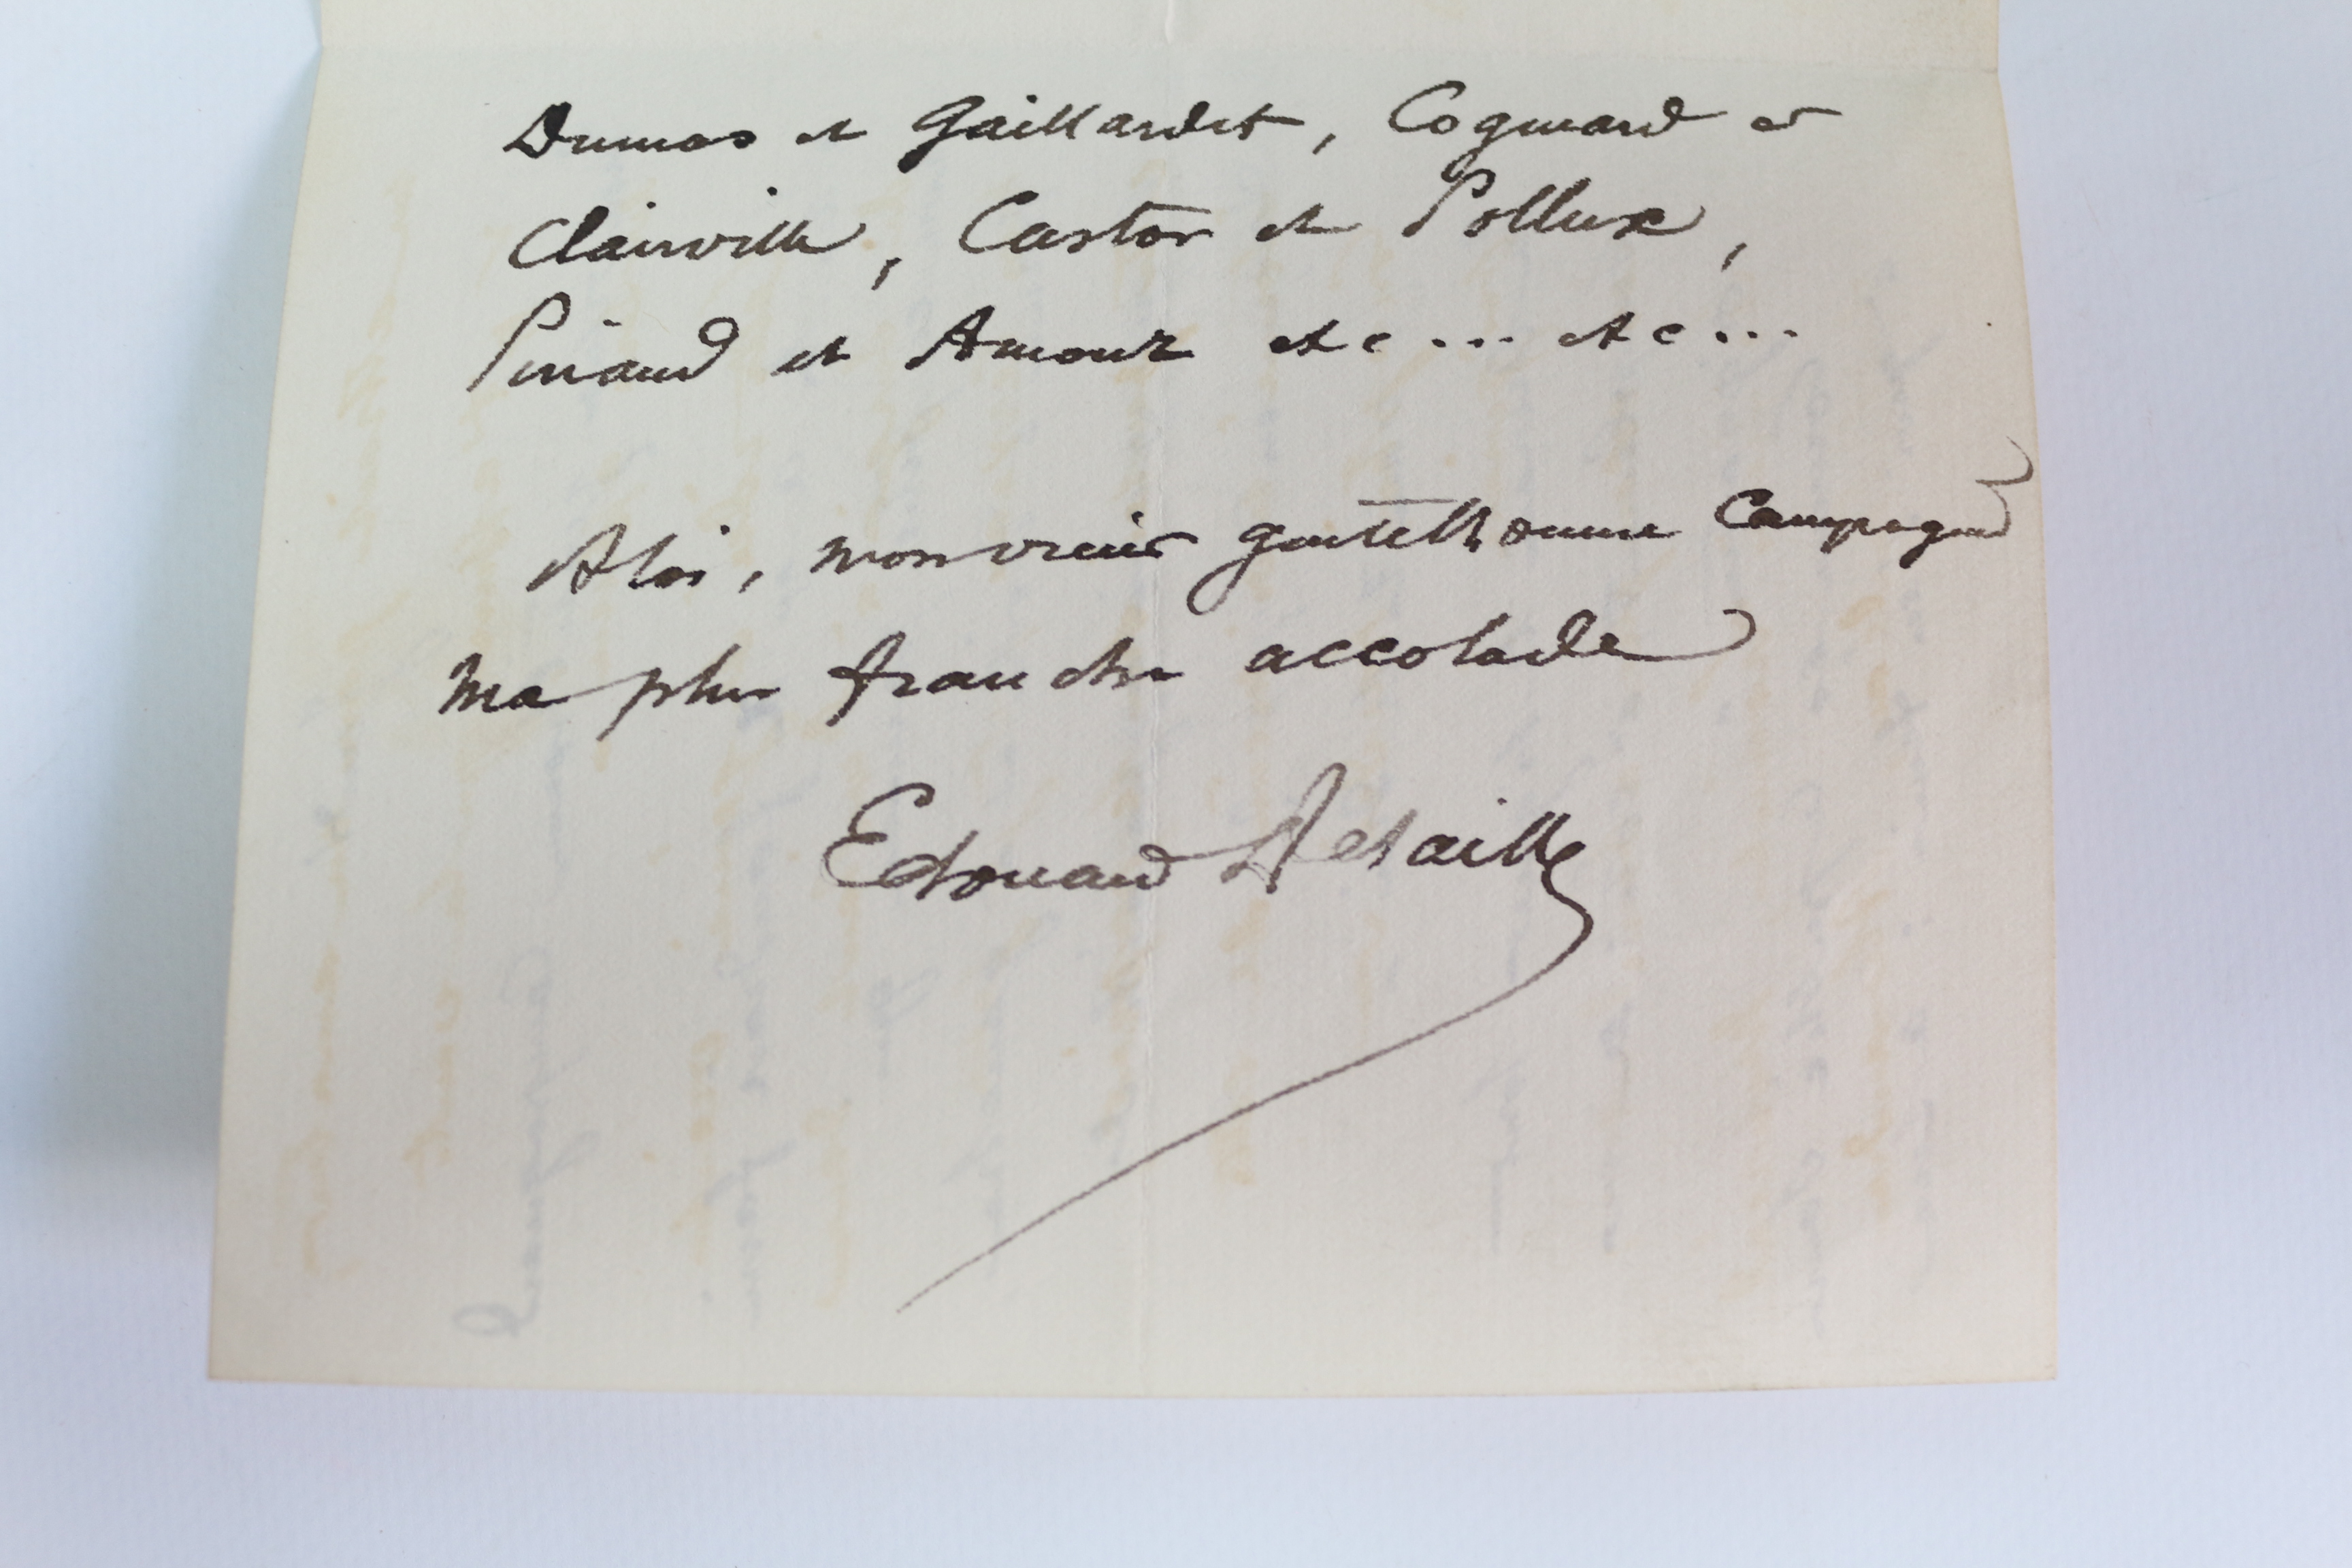 Dumas et Gaillardet, Cogniard et
Clairville, Castor et Pollux,
Pinaud et Amour etc... etc...
A toi, mon vieux gentilhomme Campagnard
ma plus franche accolade
Edouard Detaille